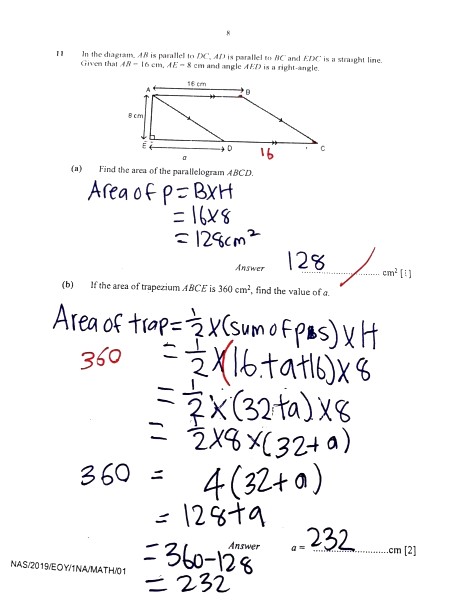 8
11 In the diagram, AB is parallel to DC, AD is parallel to BC and EDC is a straight line.
Given that AB = 16 cm, AE = 8 cm and angle AED is a right-angle.
16 cm
A B
8 cm
E D C
a 16
(a) Find the area of the parallelogram ABCD.
Area of P = B×H
= 16×8
= 128cm²
Answer 128 cm² [1]
(b) If the area of trapezium ABCE is 360 cm², find the value of a.
Area of trap = 1/2 × (sum of pbs) × H
360 = 1/2 × (16 + a + 16) × 8
= 1/2 × (32+a) × 8
= 1/2 × 8 × (32+a)
360 = 4(32+a)
= 128+a
Answer a = 232 cm [2]
= 360-128
= 232
NAS/2019/EOY/1NA/MATH/01